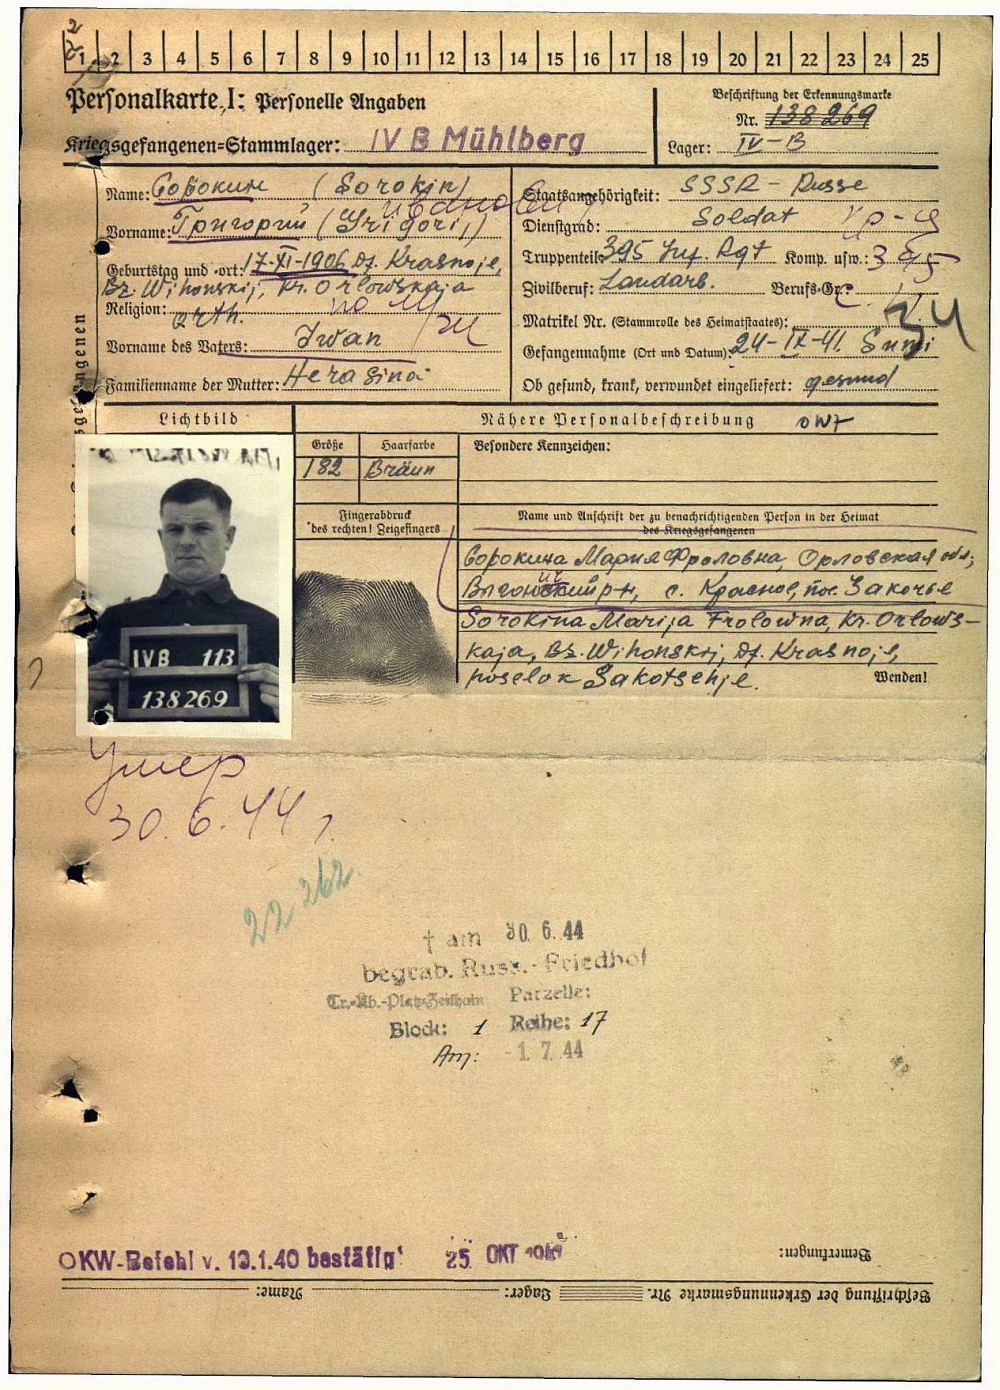 1 2 3 4 5 6 7 8 9 10 11 12 13 14 15 16 17 18 19 20 21 22 23 24 25
Personalkarte I: Personelle Angaben
Kriegsgefangenen-Stammlager: IV B Mühlberg
Beschriftung der Erkennungsmarke
Nr. 138269
Lager: IV-B
Name: Сорокин (Sorokin)
Vorname: Григорий (Grigori)
Иванович
Geburtstag und -ort: 17-XI-1906 Df. Krasnoje,
Bz. Wihonskij, Kr. Orlowskaja
Religion: orth.
Vorname des Vaters: Iwan
Familienname der Mutter: Herasina
Staatsangehörigkeit: SSSR - Russe
Dienstgrad: Soldat
Truppenteil: 395 Inf. Rgt Komp. usw.:
Zivilberuf: Landarb. Berufs-Gr.:
Matrikel Nr. (Stammrolle des Heimatstaates):
Gefangennahme (Ort und Datum): 24-IX-41. Sumi
Ob gesund, krank, verwundet eingeliefert: gesund
34
Lichtbild
Nähere Personalbeschreibung
Größe Haarfarbe Besondere Kennzeichen:
182 Bräun
Fingerabdruck
des rechten! Zeigefingers
Name und Anschrift der zu benachrichtigenden Person in der Heimat
des Kriegsgefangenen
Сорокина Мария Фроловна, Орловская обл;
с. Красное, пос. Закочье
Sorokina Marija Frolowna, Kr. Orlows-
kaja, Bz. Wihonskij, Df. Krasnoje,
poselok Sakotschje.
Wenden!
IVB 113
138269
Умер
30.6.44 г.
22 262
† am 30.6.44
begrab. Russ.-Friedhof
Tr.-Üb.-Platz-Zeithain Parzelle:
Block: 1 Reihe: 17
Am: -1.7.44
OKW-Befehl v. 13.1.40 bestätigt 25. OKT
Bemerkungen:
Beschriftung der Erkennungsmarke Nr. Lager: Name: